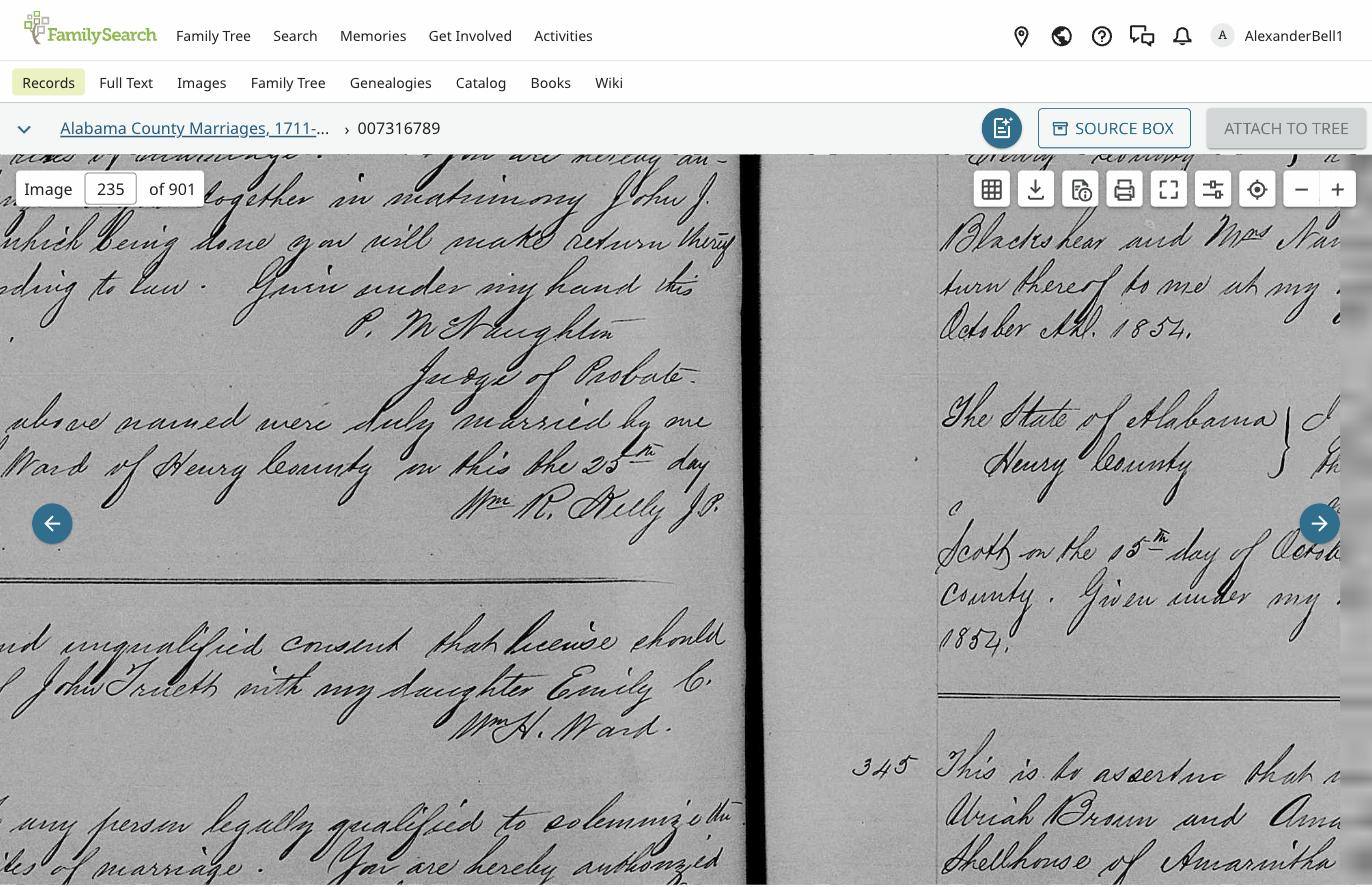 FamilySearch
Family Tree
Search
Memories
Get Involved
Activities
A
AlexanderBell1
Records
Full Text
Images
Family Tree
Genealogies
Catalog
Books
Wiki
Alabama County Marriages, 1711-...
› 007316789
SOURCE BOX
ATTACH TO TREE
Image 235 of 901
rites of marriage. You are hereby au-
together in matrimony John J.
which being done you will make return thereof
ding to law. Given under my hand this
P. McNaughtin
Judge of Probate.
above named were duly married by me
Ward of Henry County on this the 25th day
Wm R. Kelly J.P.
nd unqualified consent that license should
John Truett with my daughter Emily C.
Wm H. Ward.
any person legally qualified to solemnize the
ites of marriage. You are hereby authorized
Henry County }
Blackshear and Mrs Nan
turn thereof to me at my
October 1854.
The State of Alabama }
Henry County
Scott on the 15th day of Octob
County. Given under my
1854.
345 This is to assertin that
Uriah Brown and Ama
Shellhouse of Amarintha